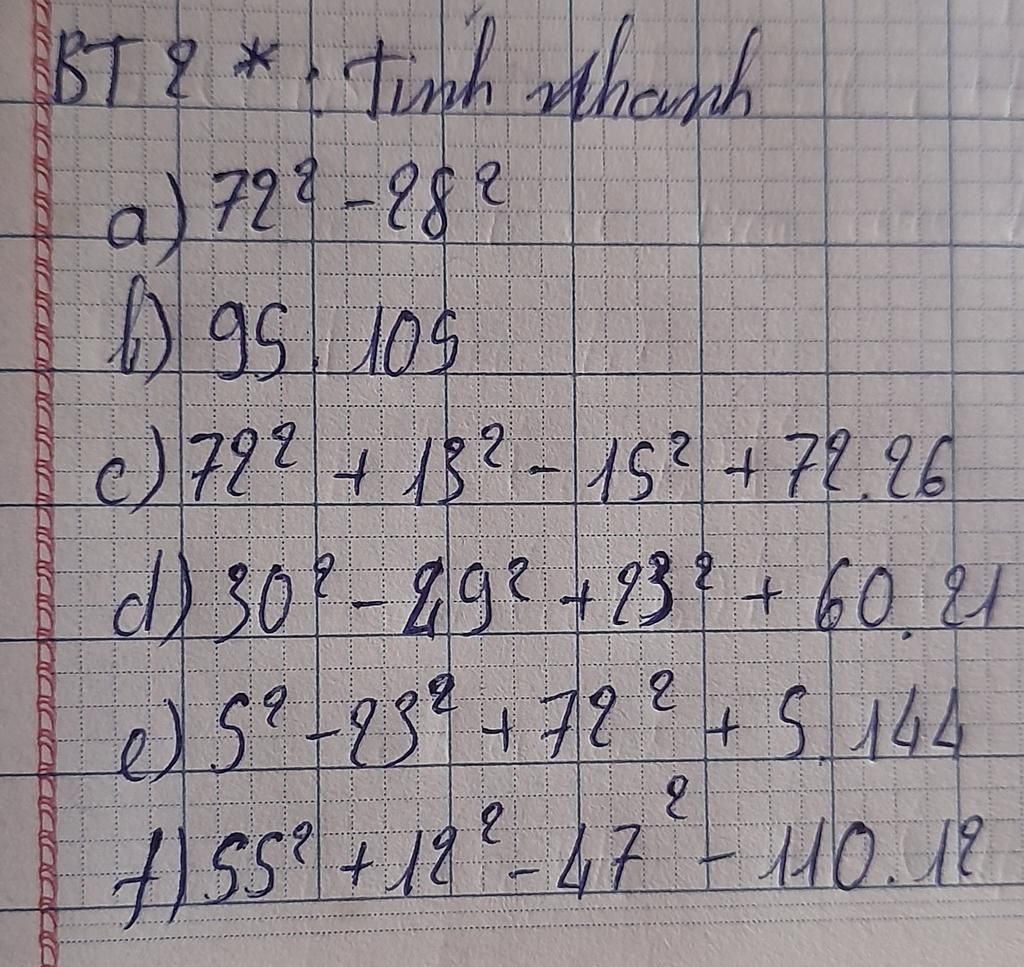 BT 2 * : Tính nhanh
a) 72² - 28²
b) 95 . 105
c) 72² + 13² - 15² + 72 . 26
d) 30² - 29² + 23² + 60 . 21
e) 5² - 23² + 72² + 5 . 144
f) 55² + 12² - 47² - 110 . 12